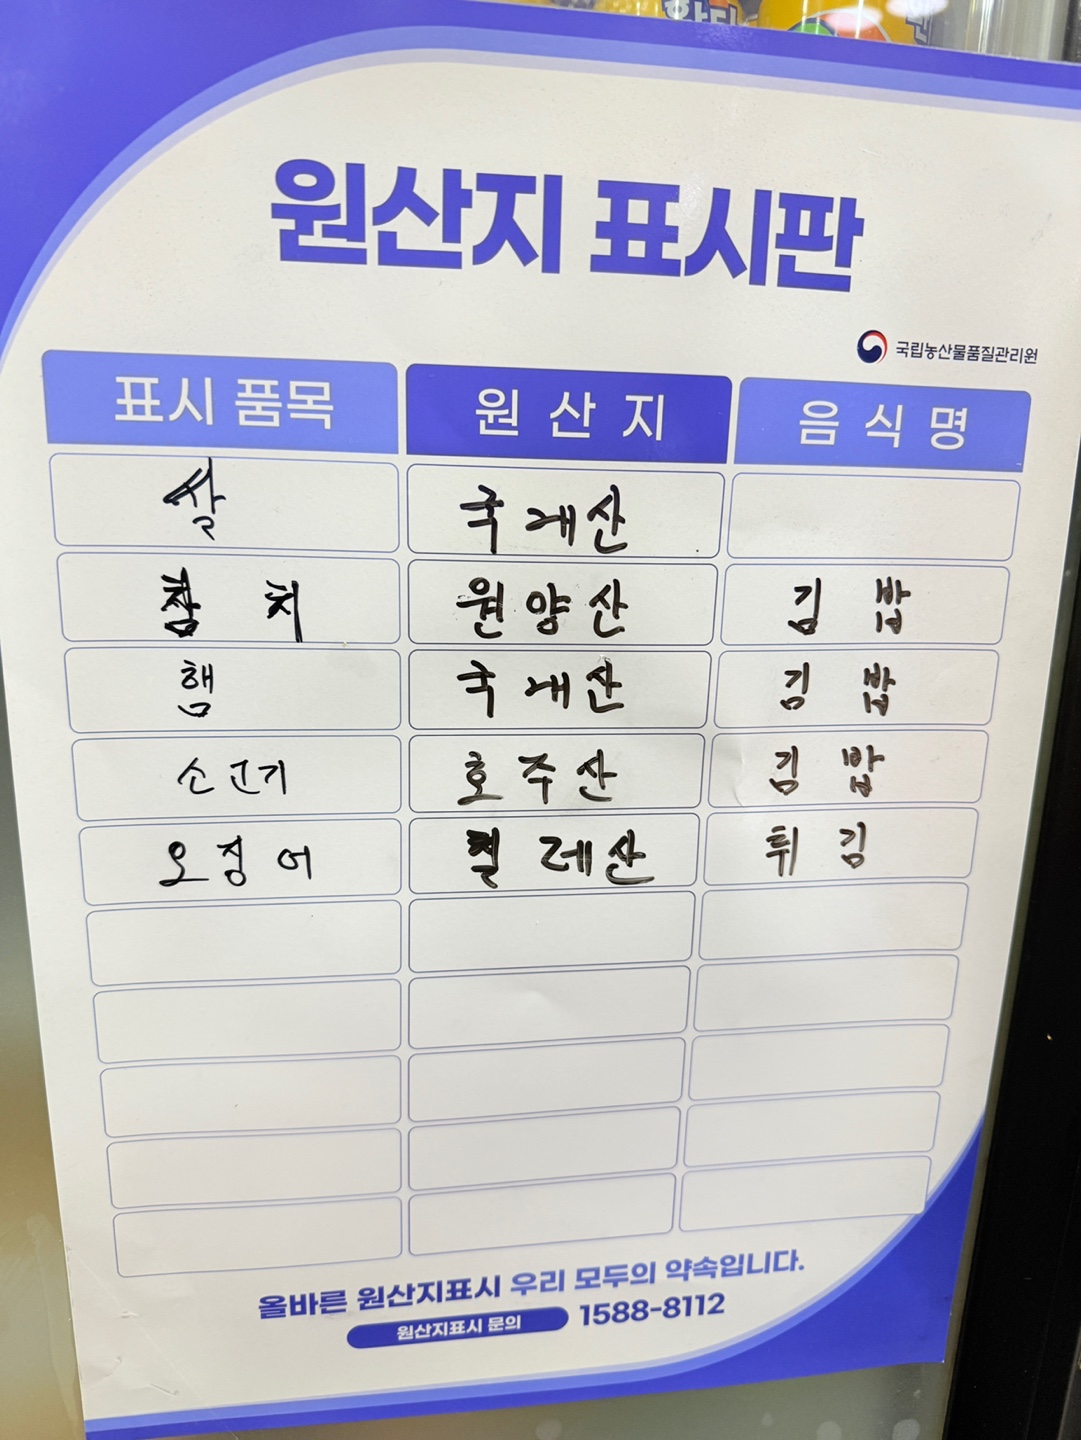 원산지 표시판
국립농산물품질관리원
표시 품목 원산지 음식명
쌀 국내산
참치 원양산 김밥
햄 국내산 김밥
소고기 호주산 김밥
오징어 칠레산 튀김
올바른 원산지표시 우리 모두의 약속입니다.
원산지표시 문의 1588-8112